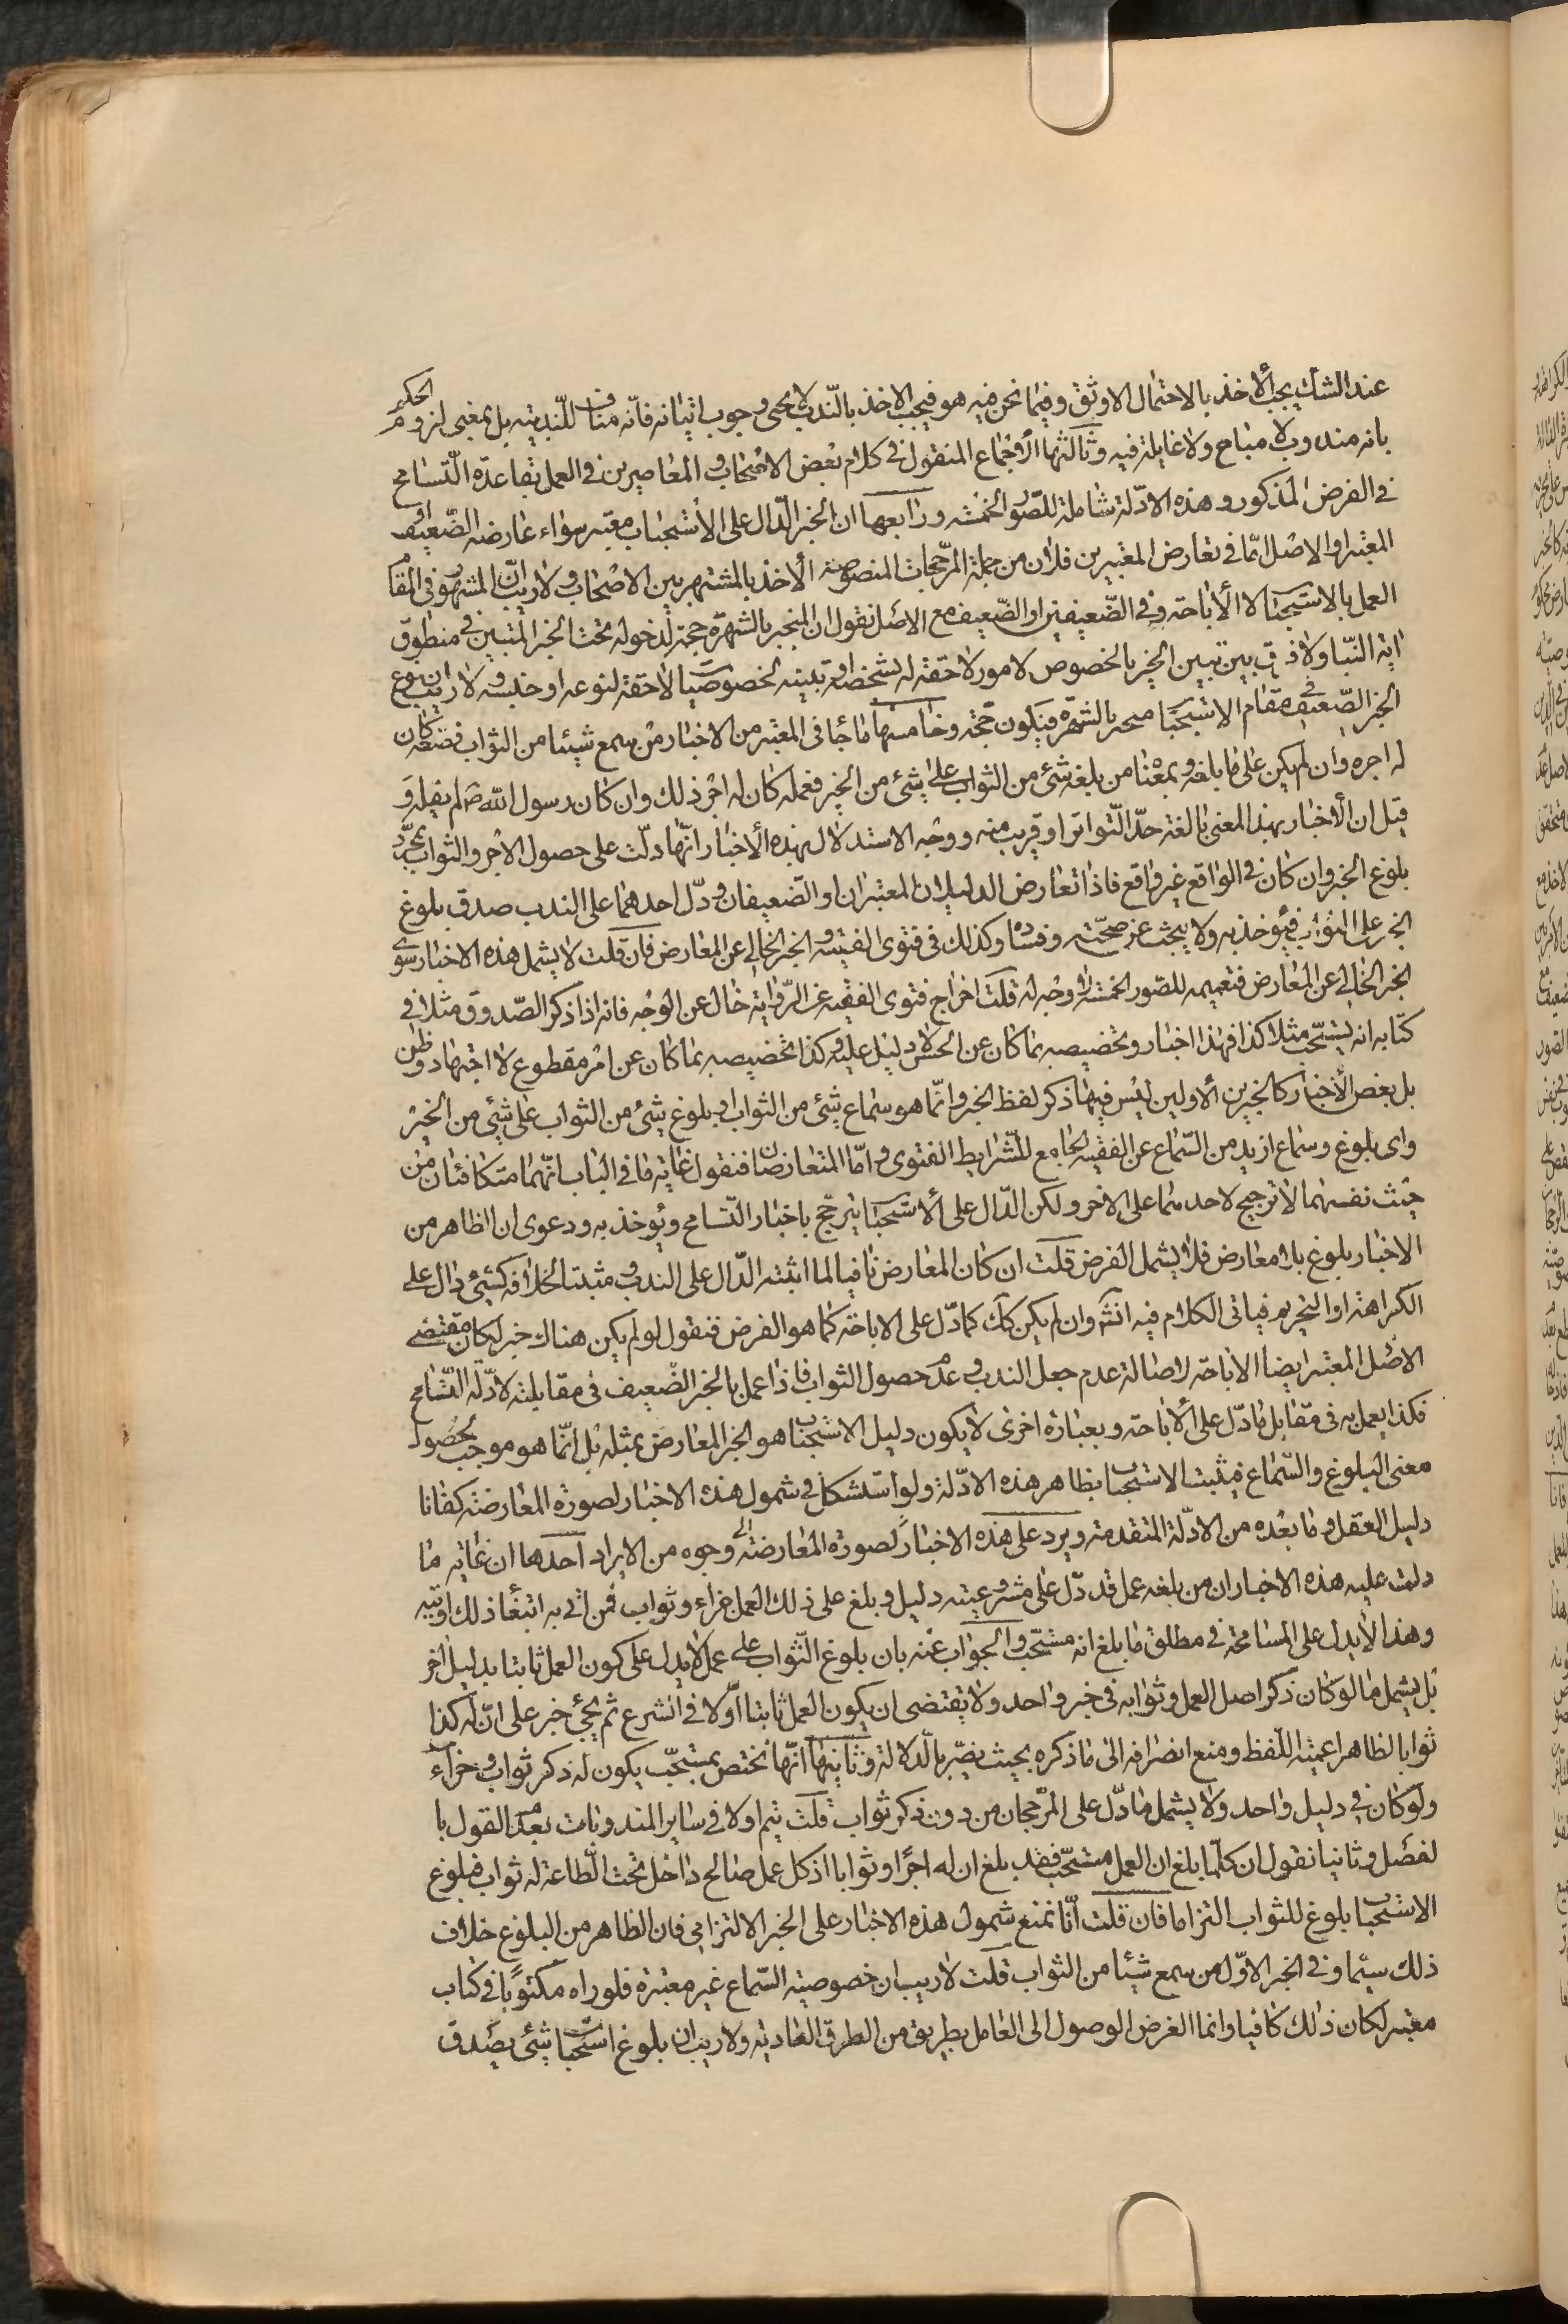 عند الشك يجب الأخذ بالاحتمال الاوثق وفيما نحن فيه هو فيجب الاخذ بالندب لا بمعنى وجوب اتيانه فانّه مناف للنّدبيّة بل بمعنى لزوم الحكم
بانه مندوب لا مباح ولا غايلة فيه وثالثها الأجماع المنقول في كلام بعض الاصحاب والمعاصرين في العمل بقاعدة التّسامح
في الفرض المذكور وهذه الادّلة شاملة للصّور الخمسة ورابعها ان الخبر الدّال على الأستحباب معتبر سواء عارضه الضّعيف او
المعتبر او الاصل امّا في تعارض المعتبرين فلان من جملة المرّجحات المنصوصة الأخذ بالمشتهر بين الاصحاب ولا ريب انّ المشهور في المقام
العمل بالاستحباب لا الأباحة وفي الضّعيفين او الضّعيف مع الاصل نقول ان المنجبر بالشهرة حجة لدخوله تحت الخبر المتبين في منطوق
اية النّبأ ولا فرق بين تبيين الخبر بالخصوص لامور لاحقة له بشخصه او تبينه لخصوصيّات لاحقة لنوعه او جنسه ولا ريب ان نوع
الخبر الضّعيف في مقام الاستحباب منجبر بالشهرة فيكون حجّة وخامسها ما جاء في المعتبر من الاخبار من سمع شيئا من الثواب فصنعه كان
له اجره وان لم يكن على ما بلغه وبمعناه من بلغه شئ من الثواب على شئ من الخير فعمله كان له اجر ذلك وان كان رسول الله ص لم يقله و
قيل ان الأخبار بهذا المعنى بالغة حدّ التّواتر او قريب منه ووجه الاستدلال بهذه الأخبار انّها دلّت على حصول الاجر والثواب بمجرّد
بلوغ الخبر وان كان في الواقع غير واقع فاذا تعارض الدليلان المعتبران او الضّعيفان ودّل احدهما على الندب صدق بلوغ
الخبر على الثواب فيؤخذ به ولا يبحث عن صحّته وفساده وكذلك في فتوى الفقيه والخبر الخالي عن المعارض فان قلت لا يشمل هذه الاخبار سوى
الخبر الخالي عن المعارض فتعميمه للصّور الخمسة لا وجه له قلت اخراج فتوى الفقيه عن الرّواية خال عن الوجه فانه اذا ذكر الصّدوق مثلا في
كتابه انه يستحّب مثلا كذا فهذا اخبار وتخصيصه بما كان عن الحسّ لا دليل عليه وكذا تخصيصه بما كان عن امر مقطوع لا اجتهاد وظن
بل بعض الأخبار كالخبرين الأولين ليس فيها ذكر لفظ الخبر وانّما هو سماع شئ من الثواب او بلوغ شئ من الثواب على شئ من الخير
واى بلوغ وسماع ازيد من السّماع عن الفقيه الجامع للشّرايط الفتوى وامّا المتعارضان فنقول غاية ما في الباب انّهما متكافئان من
حيث نفسهما لا ترجيح لاحد منهما على الاخر ولكن الدّال على الأستحباب يترجّح باخبار التّسامح ويؤخذ به ودعوى ان الظاهر من
الاخبار بلوغ بلا معارض فلا يشمل الفرض قلت ان كان المعارض نافيا لما اثبته الدّال على الندب ومثبتا لخلافه كشئ دال على
الكراهة او التحريم فياتي الكلام فيه انشَ وان لم يكن كك كما دّل على الاباحة كما هو الفرض فنقول لو لم يكن هناك خبر لكان مقتضى
الاصل المعتبر ايضا الاباحة لاصالة عدم جعل الندب وعدم حصول الثواب فاذا عمل بالخبر الضّعيف في مقابلته لادّلة التسّامح
فكذا يعمل به في مقابل ما دّل على الأباحة وبعبارة اخرى لا يكون دليل الاستحباب هو الخبر المعارض بمثله بل انّما هو موجب لحصول
معنى البلوغ والسّماع فيثبت الاستحباب بظاهر هذه الادّلة ولو استشكل في شمول هذه الاخبار لصورة المعارضة كفانا
دليل العقل وما بعده من الادلّة المتقدمة ويرد على هذه الاخبار لصورة المعارضة وجوه من الايراد احدها ان غاية ما
دلت عليه هذه الاخبار ان من بلغه عمل قد دّل على مشروعيته دليل وبلغ على ذلك العمل جزاء وثواب فمن اتى به ابتغاء ذلك اوتيه
وهذا لا يدل على المسامحة في مطلق ما بلغ انه مستحّب والجواب عنه بان بلوغ الثّواب على عمل لا يدل على كون العمل ثابتا بدليل اخر
بل يشمل ما لو كان ذكر اصل العمل وثوابه في خبر واحد ولا يقتضى ان يكون العمل ثابتا اوّلا في الشرع ثم يجئ خبر على انّ له كذا
ثوابا لظاهر اعمية اللّفظ ومنع انصرافه الى ما ذكره بحيث يضّر بالّدلالة وثانيها انّها تختص بمستحّب يكون له ذكر ثواب وجزاء
ولو كان في دليل واحد ولا يشمل ما دّل على الرّجحان من دون ذكر ثواب قلت يتم اولا في ساير المندوبات بعدم القول با
لفصل وثانيا نقول ان كلّما بلغ ان العمل مستحّب فقد بلغ ان له اجرًا وثوابا اذ كل عمل صالح داخل تحت الّطاعة له ثواب فبلوغ
الاستحباب بلوغ للثواب التزاما فان قلت انّا نمنع شمول هذه الاخبار على الخبر الالتزامي فان الظاهر من البلوغ خلاف
ذلك سيّما وفي الخبر الاوّل من سمع شيئا من الثواب قلت لا ريب ان خصوصية السّماع غير معتبرة فلو راه مكتوبًا في كتاب
معتبر لكان ذلك كافيا وانما الغرض الوصول الى العامل بطريق من الطرق العادية ولا ريب ان بلوغ استحباب شئ يصدق